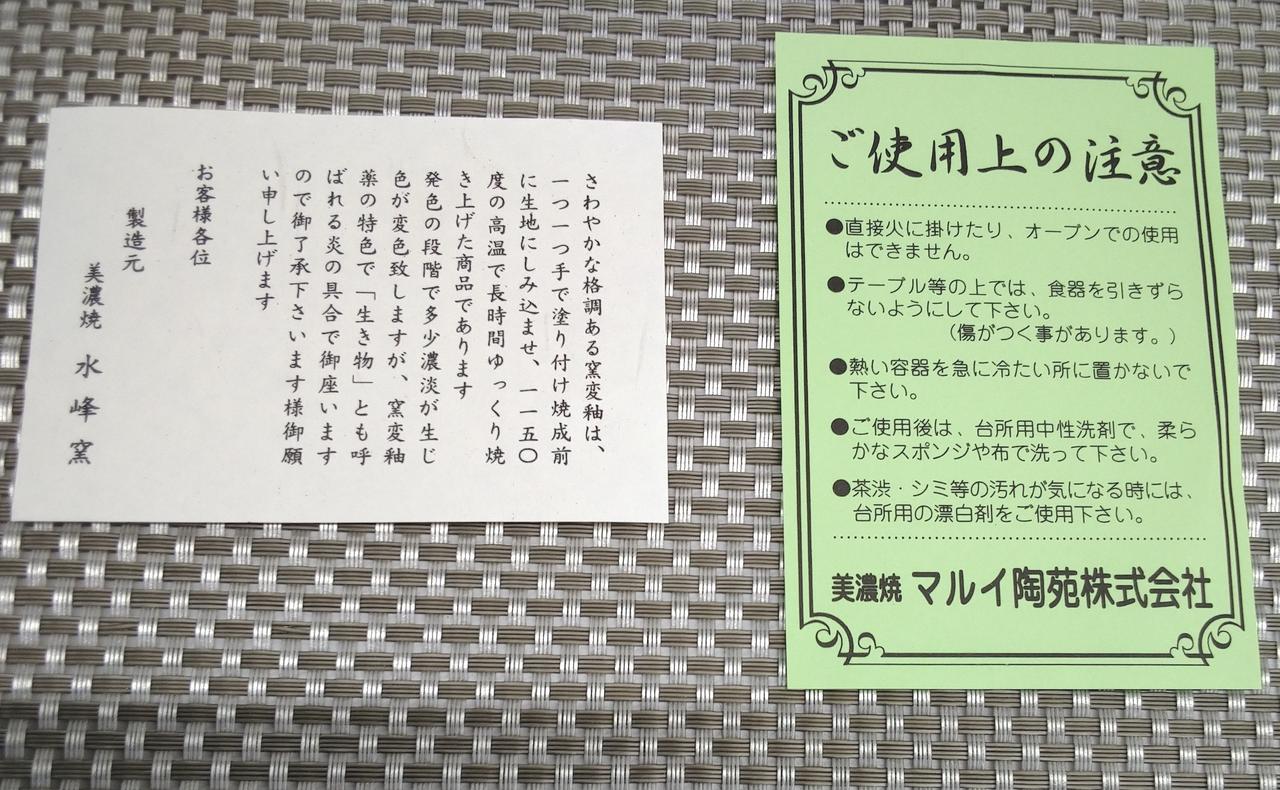 さわやかな格調ある窯変釉は、
一つ一つ手で塗り付け焼成前
に生地にしみ込ませ、一一五〇
度の高温で長時間ゆっくり焼
き上げた商品であります
発色の段階で多少濃淡が生じ
色が変色致しますが、窯変釉
薬の特色で「生き物」とも呼
ばれる炎の具合で御座います
ので御了承下さいます様御願
い申し上げます
お客様各位
製造元
美濃焼 水峰窯
ご使用上の注意
●直接火に掛けたり、オーブンでの使用
はできません。
●テーブル等の上では、食器を引きずら
ないようにして下さい。
(傷がつく事があります。)
●熱い容器を急に冷たい所に置かないで
下さい。
●ご使用後は、台所用中性洗剤で、柔ら
かなスポンジや布で洗って下さい。
●茶渋・シミ等の汚れが気になる時には、
台所用の漂白剤をご使用下さい。
美濃焼 マルイ陶苑株式会社